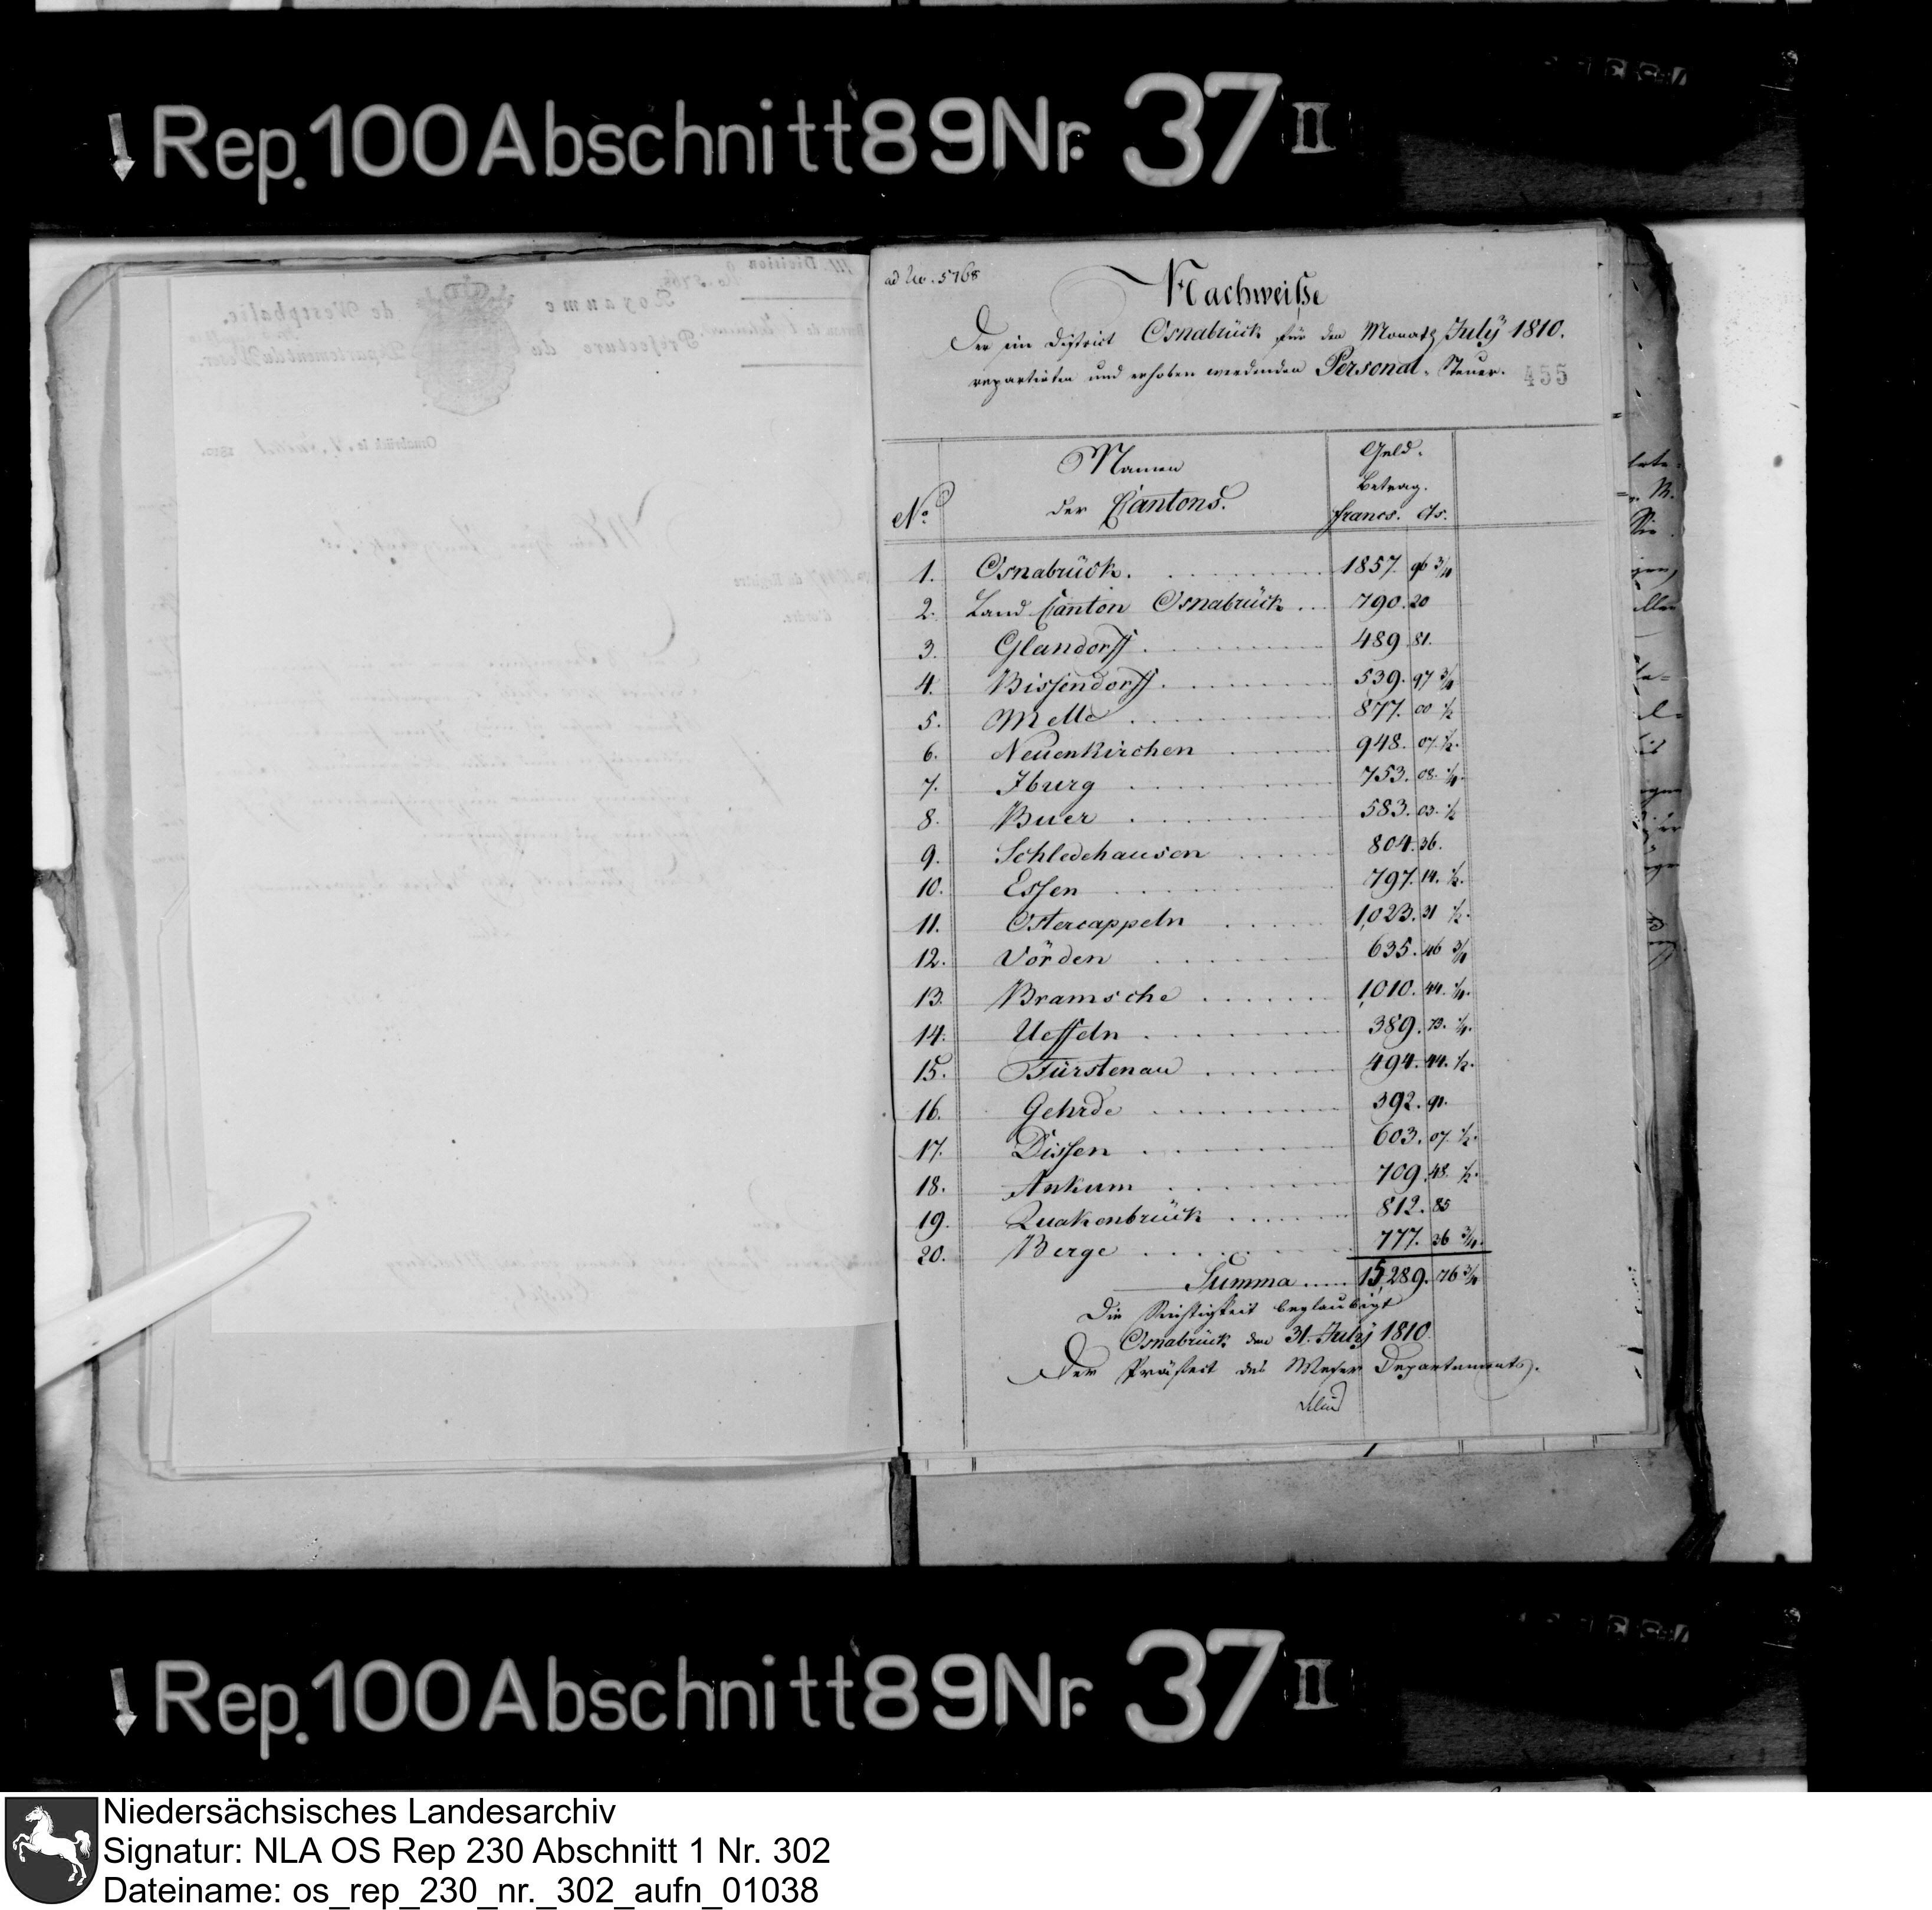 Rep. 100 Abschnitt 89 Nr. 37 II
ad No. 5768
Nachweiße
Der im District Osnabrück für den Monath July 1810.
repartirten und erhoben werdenden Personal-Steuer.
455
No. Namen der Cantons. Geld-Betrag. francs. cts.
1. Osnabrück. 1857. 96 3/4
2. Land Canton Osnabrück 790. 20
3. Glandorff 489. 81.
4. Bissendorff 539. 97 3/4
5. Melle 877. 00 1/2
6. Neuenkirchen 948. 07. 1/2.
7. Iburg 753. 08. 1/4.
8. Buer 583. 03. 1/2
9. Schledehausen 804. 36.
10. Essen 797. 14. 1/2.
11. Ostercappeln 1,023. 31 1/2.
12. Vörden 635. 46 3/4
13. Bramsche 1,010. 44. 1/4.
14. Ueffeln 389. 73. 1/4.
15. Fürstenau 494. 44. 1/2.
16. Gehrde 392. 91.
17. Dissen 603. 07. 1/2.
18. Ankum 709. 48. 1/2.
19. Quakenbrück 812. 85
20. Berge 777. 36 3/4.
Summa 15,289. 76 3/4
Die Richtigkeit beglaubigt
Osnabrück den 31. July 1810.
Der Präfect des Weser Departements.
Rep. 100 Abschnitt 89 Nr. 37 II
Niedersächsisches Landesarchiv
Signatur: NLA OS Rep 230 Abschnitt 1 Nr. 302
Dateiname: os_rep_230_nr._302_aufn_01038